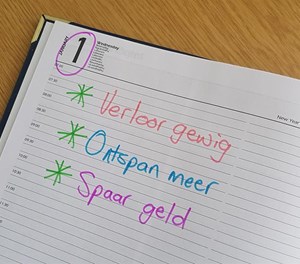 JANUARY
1
Wednesday
New Year
Verloor gewig
Ontspan meer
Spaar geld